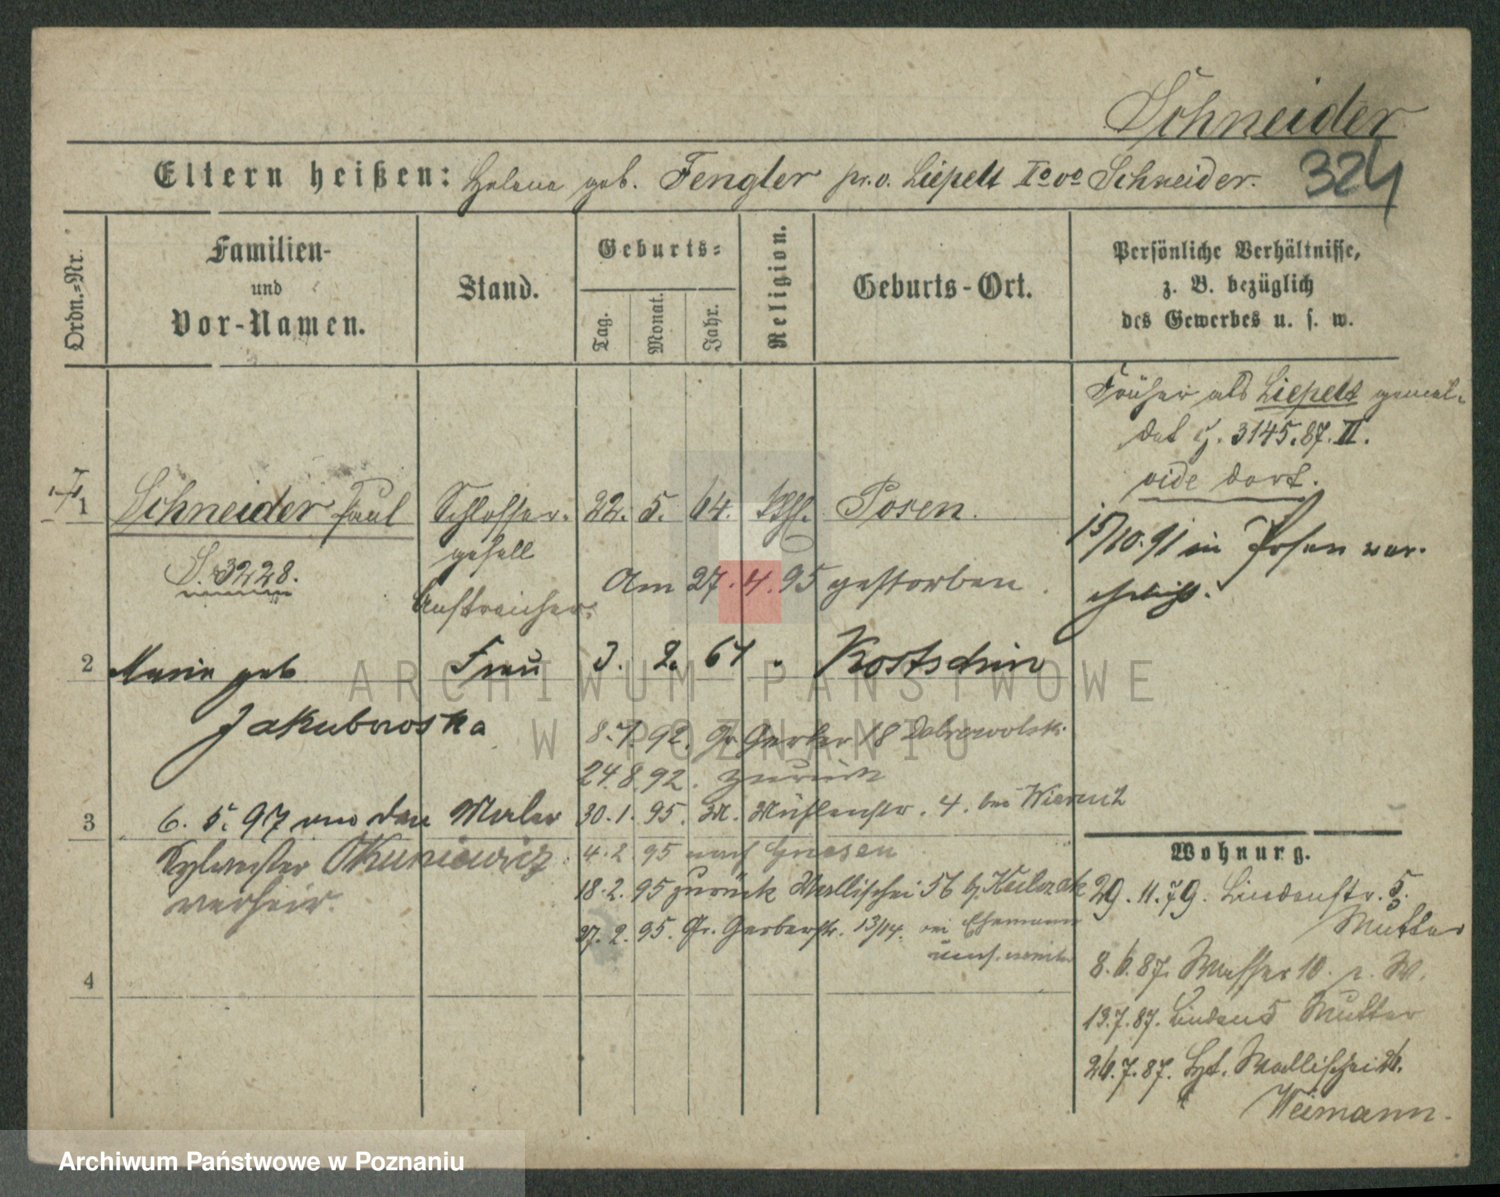 Schneider
324
Eltern heißen: Helena geb. Fengler pr. v. Liepelt IIo vo Schneider.
Ordn.-Nr.
Familien- und Vor-Namen.
Stand.
Geburts-
Tag.
Monat.
Jahr.
Religion.
Geburts-Ort.
Persönliche Verhältnisse,
z. B. bezüglich
des Gewerbes u. s. w.
Früher als Liepelt gemel-
det 3145.87.II.
vide dort.
1 Schneider Paul Schlosser- 22. 5. 64. Posen.
gesell
S. 3228.
Anstreicher.
Am 27.4.95 gestorben.
15/10.91 in Posen ver-
ehelicht.
2 Marie geb Frau 3. 2. 67 " Kostschin
Jakubowska
8.7.92. Gr. Gerber 18 Dobrowolski
24.8.92. zurück
3 6. 5. 97 den Maler 30.1.95. Mühlenstr. 4. bei
Sylwester Okuniewicz
verheir.
4.2.95 nach Gnesen
18.2.95 zurück Wallischei 56 b. Kubiak
27.2.95. Gr. Gerberstr. 13/14. Ehemann
4
Wohnung.
29.11.79. Lindenstr. 5.
Mutter
8.6.87. Wasser 10.
13.7.87. Linden 5 Mutter
26.7.87. Wallischei 26.
Weimann.
ARCHIWUM PAŃSTWOWE
W POZNANIU
Archiwum Państwowe w Poznaniu